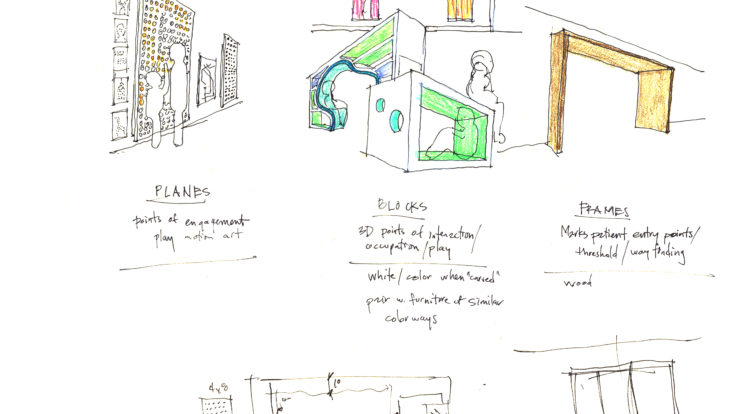 PLANES
points of engagement
play motion art
BLOCKS
3D points of interaction/
occupation/play
white/color when "carved"
pair w. furniture of similar
colorways
FRAMES
Marks patient entry points/
threshold/way finding
wood
4x8
10